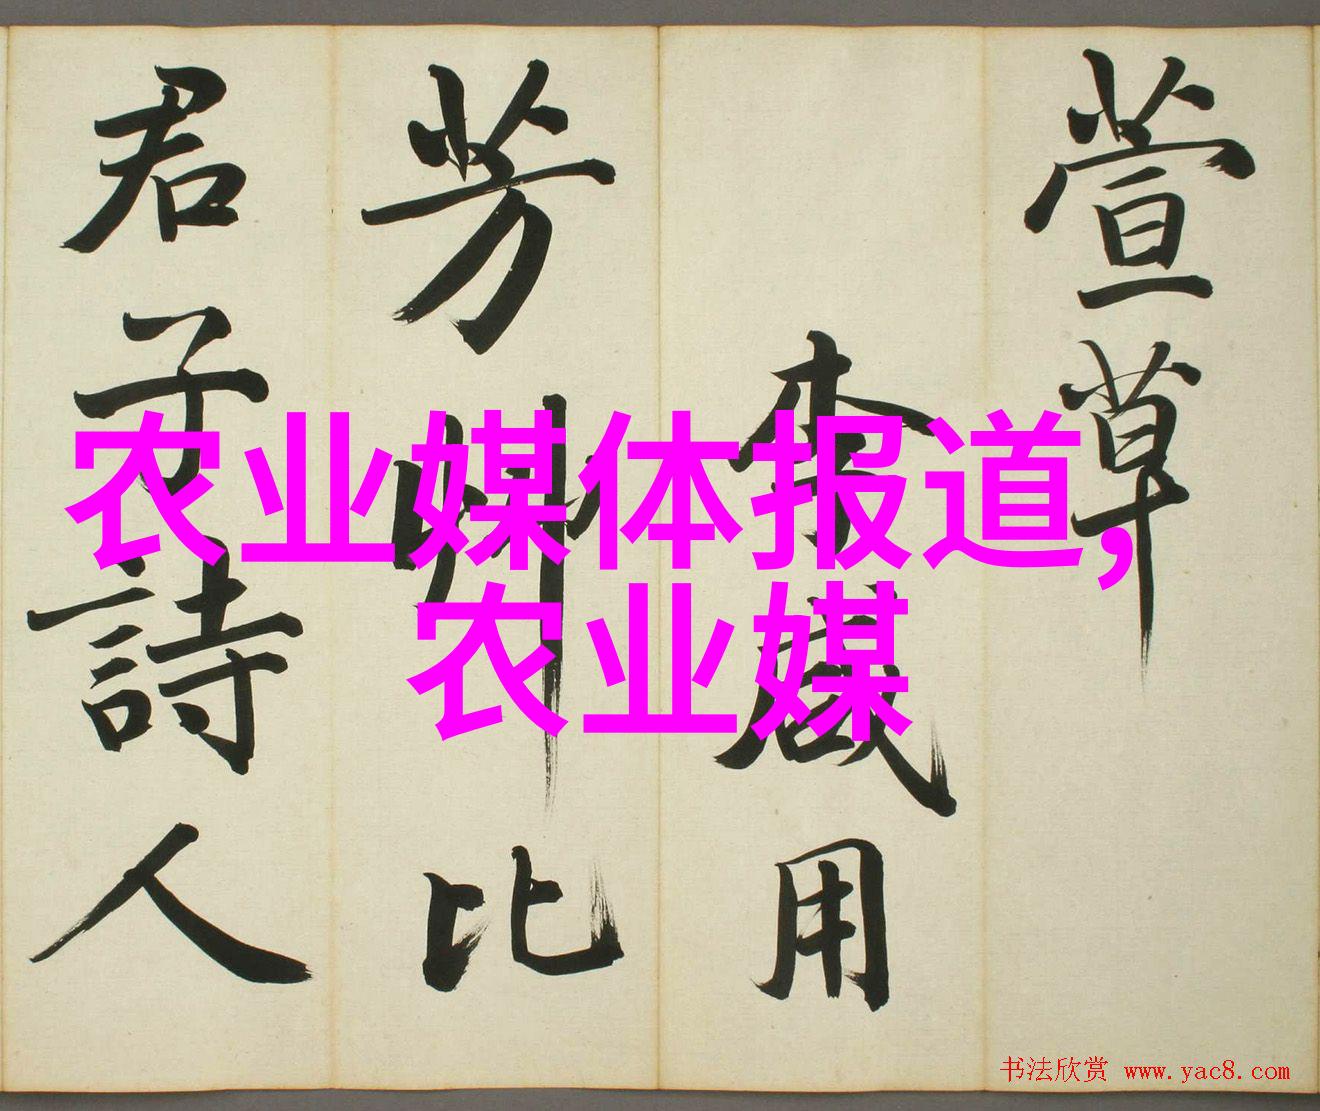 萱草
李咸用
芳草比
君子詩人
农业媒体报道,
农业媒
书法欣赏 www.yac8.com